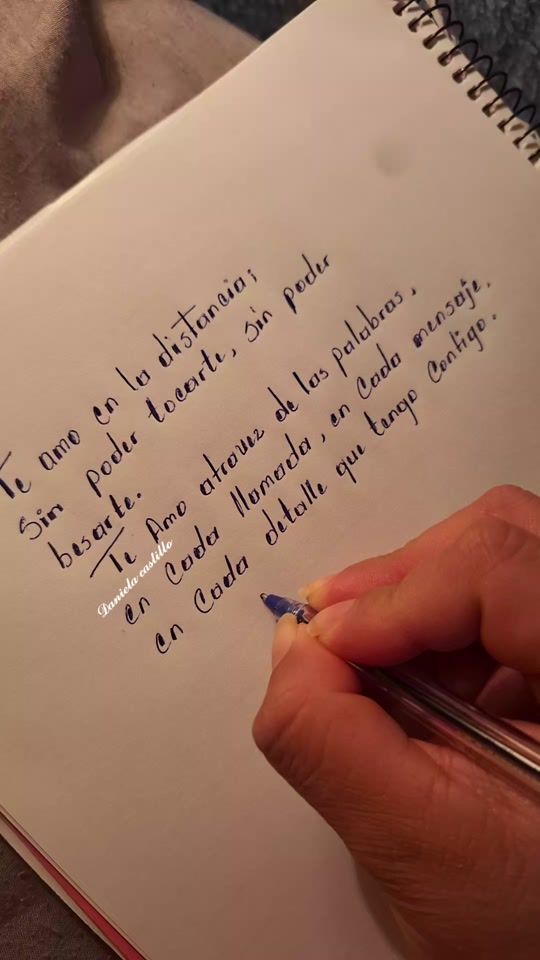 Te amo en la distancia;
Sin poder tocarte, sin poder
besarte.
Te Amo atravez de las palabras,
en cada llamada, en cada mensaje,
en cada detalle que tengo contigo.
Daniela castillo